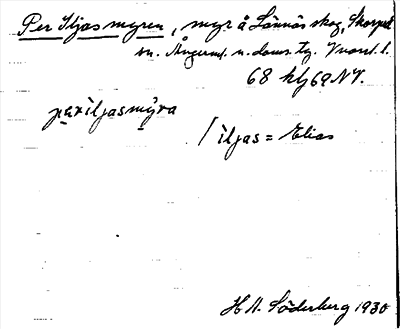 Per Iljas myren, myr å Sännäs skog, Skorped
sn. Ångerml. n. doms. tg.
68 klf 69 NV.
pęriljasmy̨ra
/ iljas = Elias
H A. Söderberg 1930